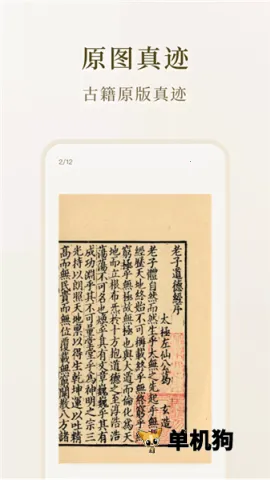 原图真迹
古籍原版真迹
2/12
老子道德經序
太極左仙公葛 玄 造
老子體自然而然生乎太無之先起乎無
經歷天地終始不可稱載終乎無終窮乎
窮極乎無極故無極也與大道而倫化為天
地而立根布炁於十方抱道德之至淳浩浩
蕩蕩不可名也煥乎其有文章巍巍乎其有
成功淵乎其不可量堂堂乎為神明之宗三
光持以朗照天地稟以得生乾坤運以吐精
高而無民貴而無位覆載無窮闡教八方諸
单机狗